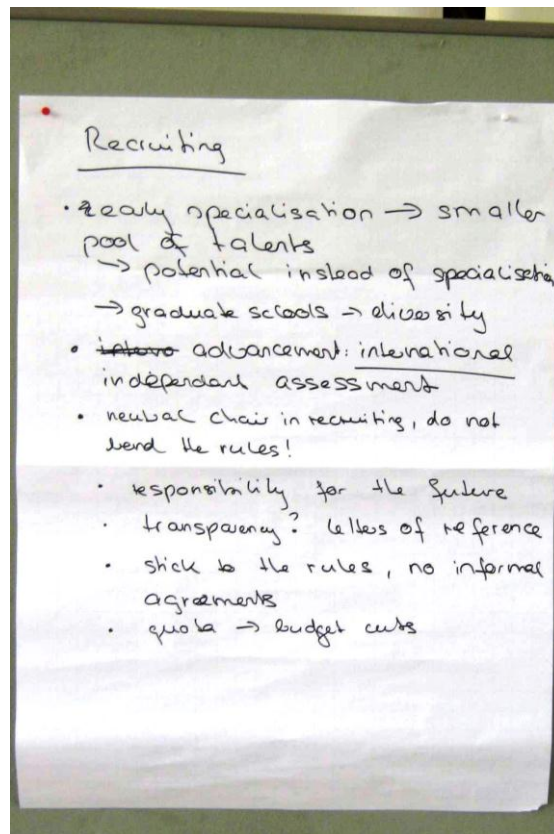 Recruiting
• early specialisation → smaller
pool of talents
→ potential instead of specialisation
→ graduate scools → diversity
• advancement: international
independant assessment
• neutral chair in recruiting, do not
bend the rules!
• responsibility for the future
• transparency? letters of reference
• stick to the rules, no informal
agreements
• quota → budget cuts